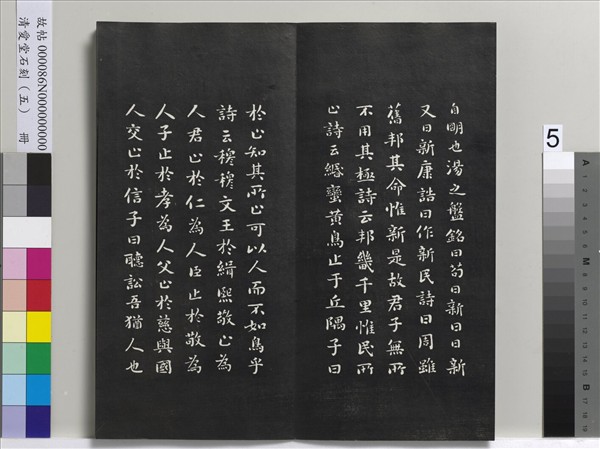 自明也湯之盤銘曰苟日新日日新
又日新康誥曰作新民詩曰周雖
舊邦其命惟新是故君子無所
不用其極詩云邦畿千里惟民所
止詩云緡蠻黄鳥止于丘隅子曰
於止知其所止可以人而不如鳥乎
詩云穆穆文王於緝熙敬止為
人君止於仁為人臣止於敬為
人子止於孝為人父止於慈與國
人交止於信子曰聽訟吾猶人也
故帖 000086N000000000
清愛堂石刻（五） 冊
5
A
M
B